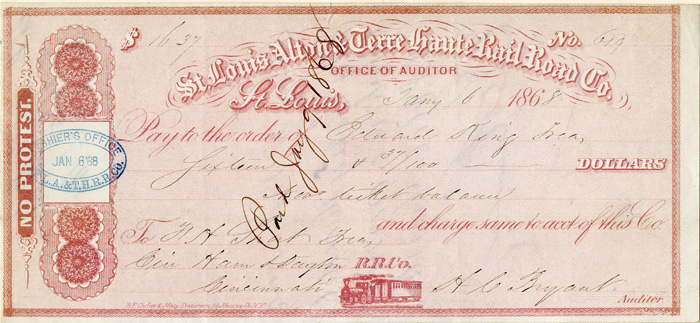 $ 16.37 No. 619
St. Louis Alton & Terre Haute Rail Road Co.
OFFICE OF AUDITOR
St. Louis, Jany 6 1868
Pay to the order of Edward King Treas
Sixteen & 37/100 DOLLARS
Nov ticket balance
and charge same to acct of this Co.
To F H Short Treas
Cin Ham & Dayton R.R. Co.
Cincinnati H C Bryant
Auditor.
NO PROTEST.
CASHIER'S OFFICE
JAN 6 '68
St. L. A. & T. H. R. R. Co.
Paid Jany 9 1868